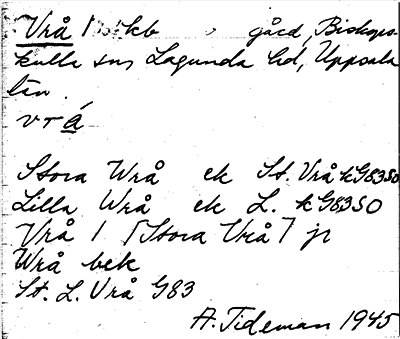 Vrå kb gård, Biskops-
kulla sn, Lagunda hd, Uppsala
län.
vrå
Stora Wrå ek St. Vrå kG83SO
Lilla Wrå ek L. kG83SO
Vrå / [Stora Vrå] jr
Wrå bek
St. L. Vrå G83
A. Tideman 1945